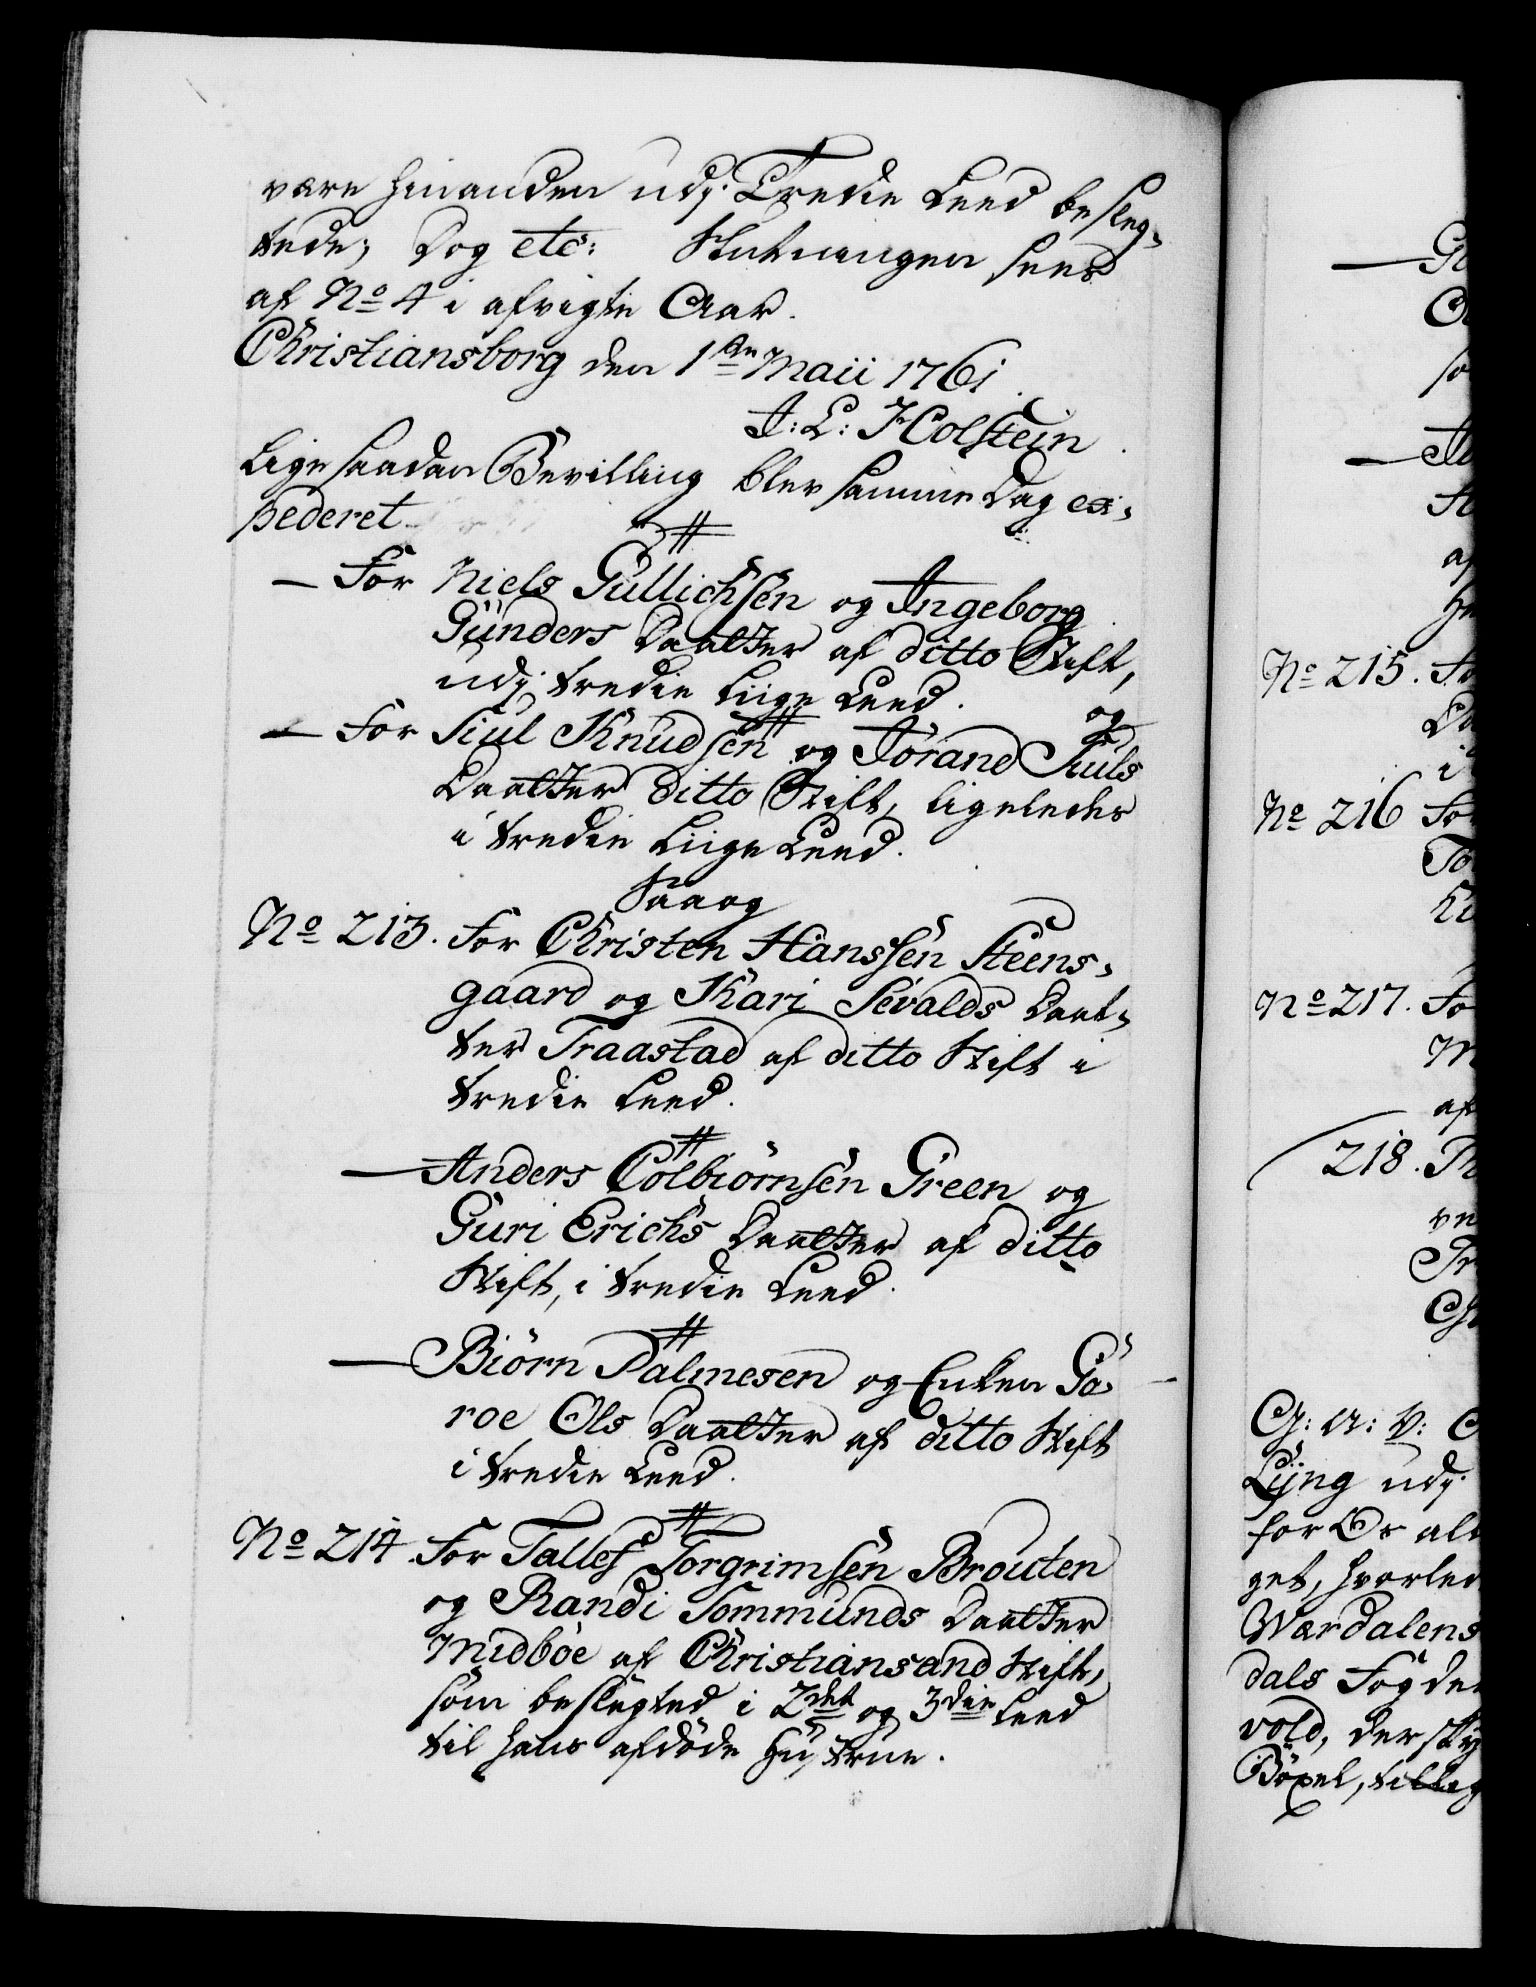 være hinanden udj Tredie Leed besleg-
tede; Dog etc: Slutningen sees
af No 4 i afvigte Aar.
Christiansborg den 1ste Maii 1761.
J: L: Holstein.
Lige saadan Bevilling blev samme Dag ex-
pederet
— For Niels Gullichsen og Ingeborg
Gunders Daatter af ditto Stift,
udj tredie Liige Leed.
og
— For Siul Knudsen og Jorand Siuls
Daatter ditto Stift, ligeledes
i tredie Liige Leed.
Saa og
No 213. For Christen Hanssen Steens-
gaard og Kari Sevalds Daat-
ter Traastad af ditto Stift i
tredie Leed.
— Anders Colbiörnsen Green og
Guri Erichs Daatter af ditto
Stift, i tredie Leed.
— Biörn Palmesen og Enken Gö-
roe Ols Daatter af ditto Stift
i tredie Leed.
No 214. For Tallef Torgrimsen Brouten
og Randi Tommunds Daatter
Midböe af Christiansand Stift,
som beslegted i 2det og 3die Leed
til hans afdöde Hustrue.
No 215.
No 216 For
No 217. For
218.
G: A: V:
Lyng udj
for Os al
get, hvorled
Wærdalens
dals Fogde
vold, der sky
Böxel, tilleg